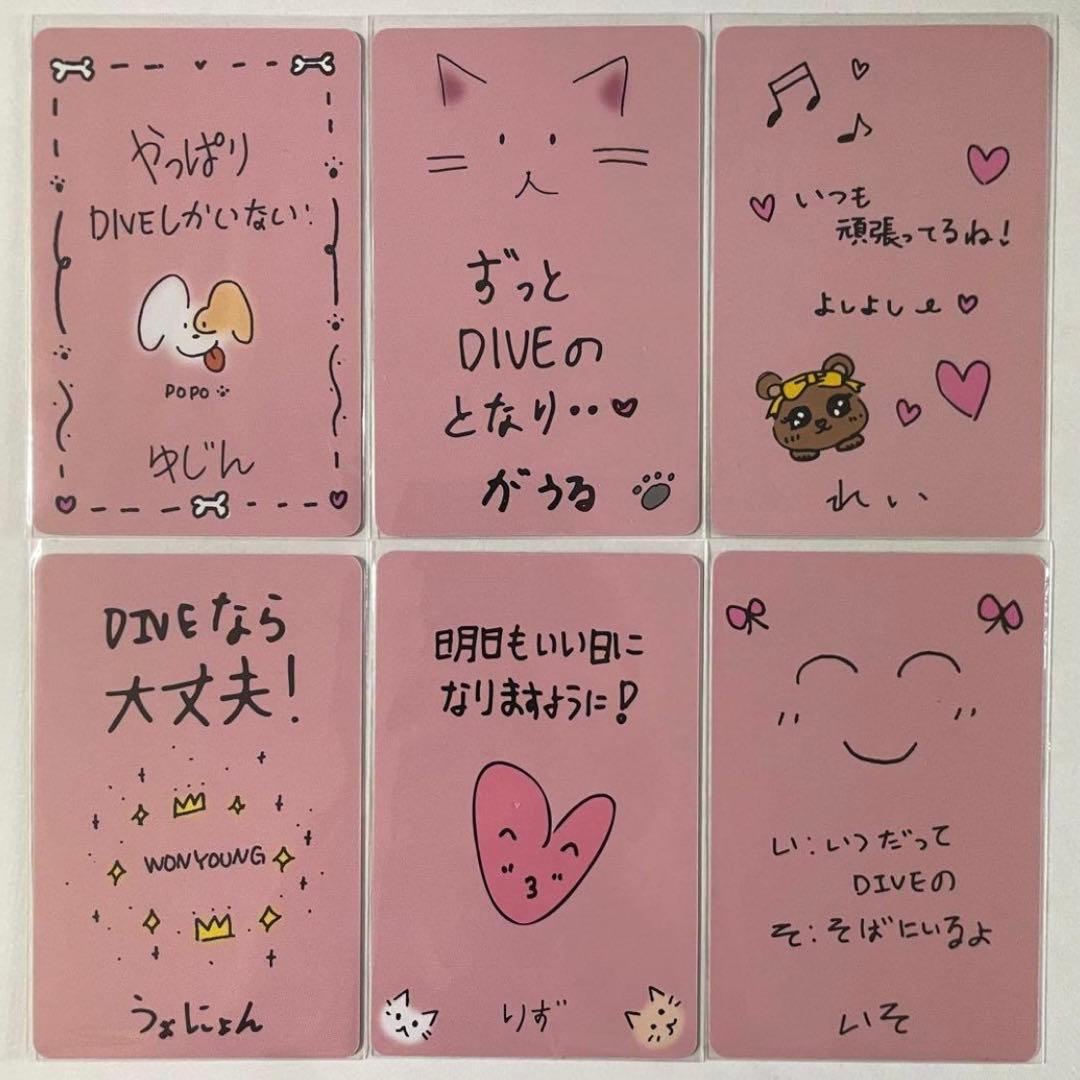 やっぱり
DIVEしかいない!
POPO
ゆじん
ずっと
DIVEの
となり‥♥
がうる
いつも
頑張ってるね!
よしよし
れい
DIVEなら
大丈夫!
WONYOUNG
うぉにょん
明日もいい日に
なりますように!
りず
い:いつだって
DIVEの
そ:そばにいるよ
いそ